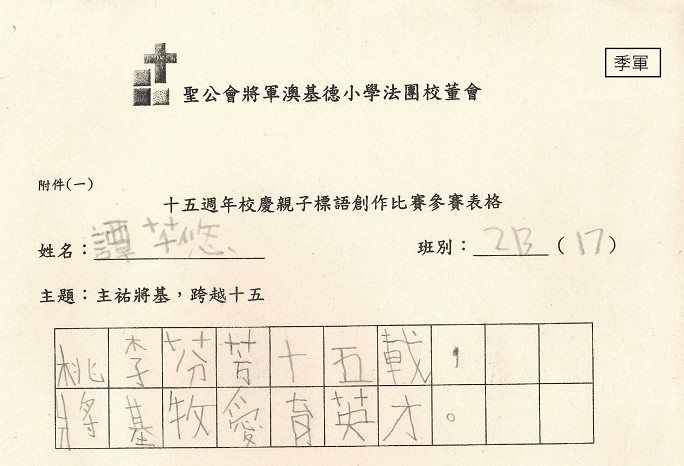 季軍
聖公會將軍澳基德小學法團校董會
附件(一)
十五週年校慶親子標語創作比賽參賽表格
姓名：譚芊悠 班別：2B (17)
主題：主祐將基，跨越十五
桃李芬芳十五載，
將基牧愛育英才。